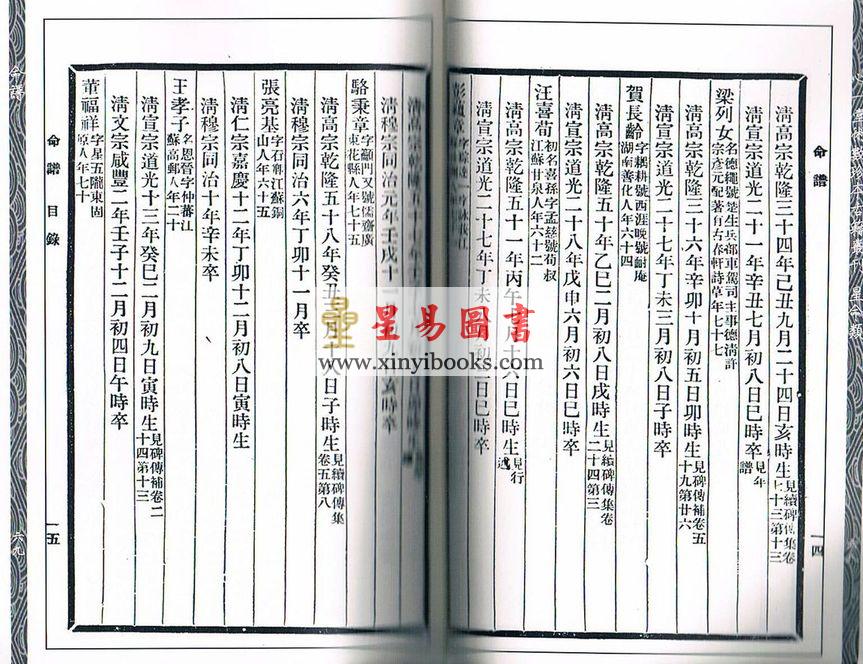 命譜
一四
清高宗乾隆三十四年己丑九月二十四日亥時生見續碑傳集卷七十三第十三
清宣宗道光二十一年辛丑七月初八日巳時卒見年譜
梁列女名德繩號楚生兵部車駕司主事德清許宗彥元配著有古春軒詩草年七十七
清高宗乾隆三十六年辛卯十月初五日卯時生見碑傳補卷五十九第廿六
清宣宗道光二十七年丁未三月初八日子時卒
賀長齡字耦耕號西涯晚號耐庵湖南善化人年六十四
清高宗乾隆五十年乙巳二月初八日戌時生見續碑傳集卷二十四第三
清宣宗道光二十八年戊申六月初六日巳時卒
汪喜荀初名喜孫字孟慈號荀叔江蘇甘泉人年六十二
清高宗乾隆五十一年丙午 月 十六日巳時生見行述
清宣宗道光二十七年丁未 初 日巳時卒
彭蘊章
清高宗乾隆五十
清穆宗同治元年壬戌十 亥時卒
駱秉章字籲門又號儒齋廣東花縣人年七十五
清高宗乾隆五十八年癸丑 月十八日子時生見續碑傳集卷五第八
清穆宗同治六年丁卯十一月卒
張亮基字石卿江蘇銅山人年六十五
清仁宗嘉慶十二年丁卯十二月初八日寅時生
清穆宗同治十年辛未卒
王孝子名恩晉字仲蕃江蘇高郵人年二十
清宣宗道光十三年癸巳二月初九日寅時生見碑傳補卷二十四第十三
清文宗咸豐二年壬子十二月初四日午時卒
董福祥字星五隴東固原人年七十
命譜 目錄
一五
命譜
六九
星易圖書
www.xinyibooks.com